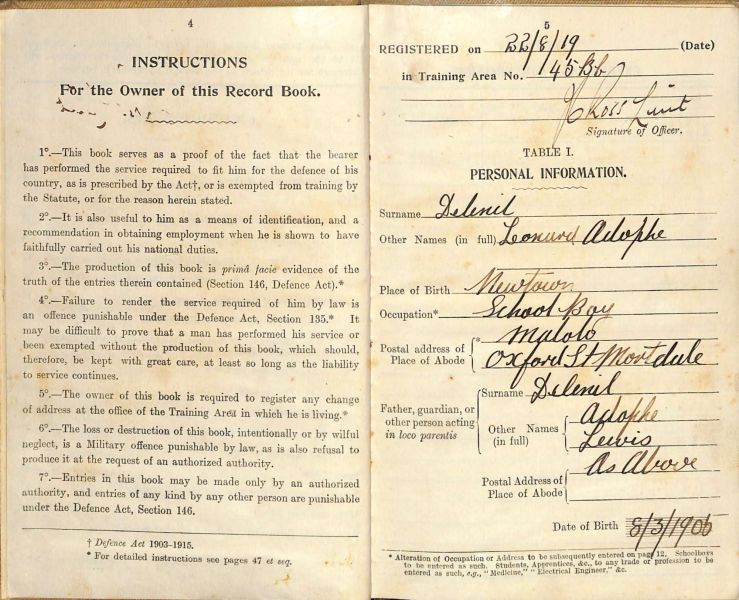 4
INSTRUCTIONS
For the Owner of this Record Book.
1°.—This book serves as a proof of the fact that the bearer
has performed the service required to fit him for the defence of his
country, as is prescribed by the Act†, or is exempted from training by
the Statute, or for the reason herein stated.
2°.—It is also useful to him as a means of identification, and a
recommendation in obtaining employment when he is shown to have
faithfully carried out his national duties.
3°.—The production of this book is primâ facie evidence of the
truth of the entries therein contained (Section 146, Defence Act).*
4°.—Failure to render the service required of him by law is
an offence punishable under the Defence Act, Section 135.* It
may be difficult to prove that a man has performed his service or
been exempted without the production of this book, which should,
therefore, be kept with great care, at least so long as the liability
to service continues.
5°.—The owner of this book is required to register any change
of address at the office of the Training Area in which he is living.*
6°.—The loss or destruction of this book, intentionally or by wilful
neglect, is a Military offence punishable by law, as is also refusal to
produce it at the request of an authorized authority.
7°.—Entries in this book may be made only by an authorized
authority, and entries of any kind by any other person are punishable
under the Defence Act, Section 146.
† Defence Act 1903-1915.
* For detailed instructions see pages 47 et seq.
5
REGISTERED on 22/8/19 (Date)
in Training Area No. 45
Ross Lieut
Signature of Officer.
TABLE I.
PERSONAL INFORMATION.
Surname Delenil
Other Names (in full) Leonard Adophe
Place of Birth Newtown
Occupation* School Boy
Postal address of Place of Abode * Malolo
Oxford St Mortdale
Father, guardian, or other person acting in loco parentis
Surname Delenil
Other Names (in full) Adophe
Lewis
Postal Address of Place of Abode As Above
Date of Birth 8/3/1905
* Alteration of Occupation or Address to be subsequently entered on page 12. Schoolboys
to be entered as such. Students, Apprentices, &c., to any trade or profession to be
entered as such, e.g., "Medicine," "Electrical Engineer," &c.